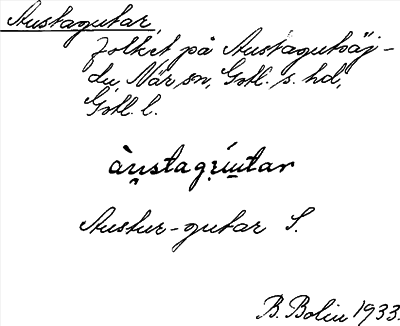 Austagutar,
folket på Austagutoäj-
du, När sn, Gotl. s. hd,
Gotl. l.
àu̯stagu̯tar
Austur-gutar S.
B. Bolin 1933.